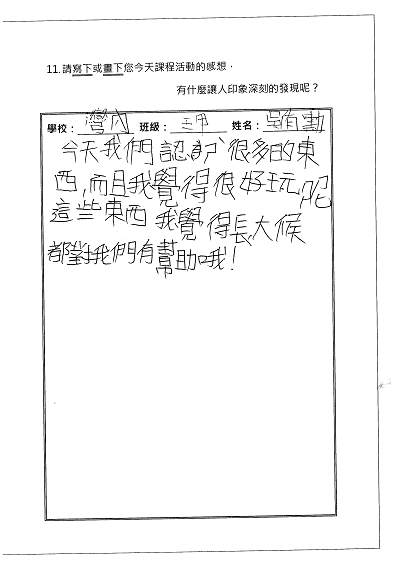 11.請寫下或畫下您今天課程活動的感想，
有什麼讓人印象深刻的發現呢？
學校：灣內 班級：三甲 姓名：吳有勳
今天我們認識很多的東
西，而且我覺得很好玩呢
這些東西我覺得長大候
都對我們有幫助哦！